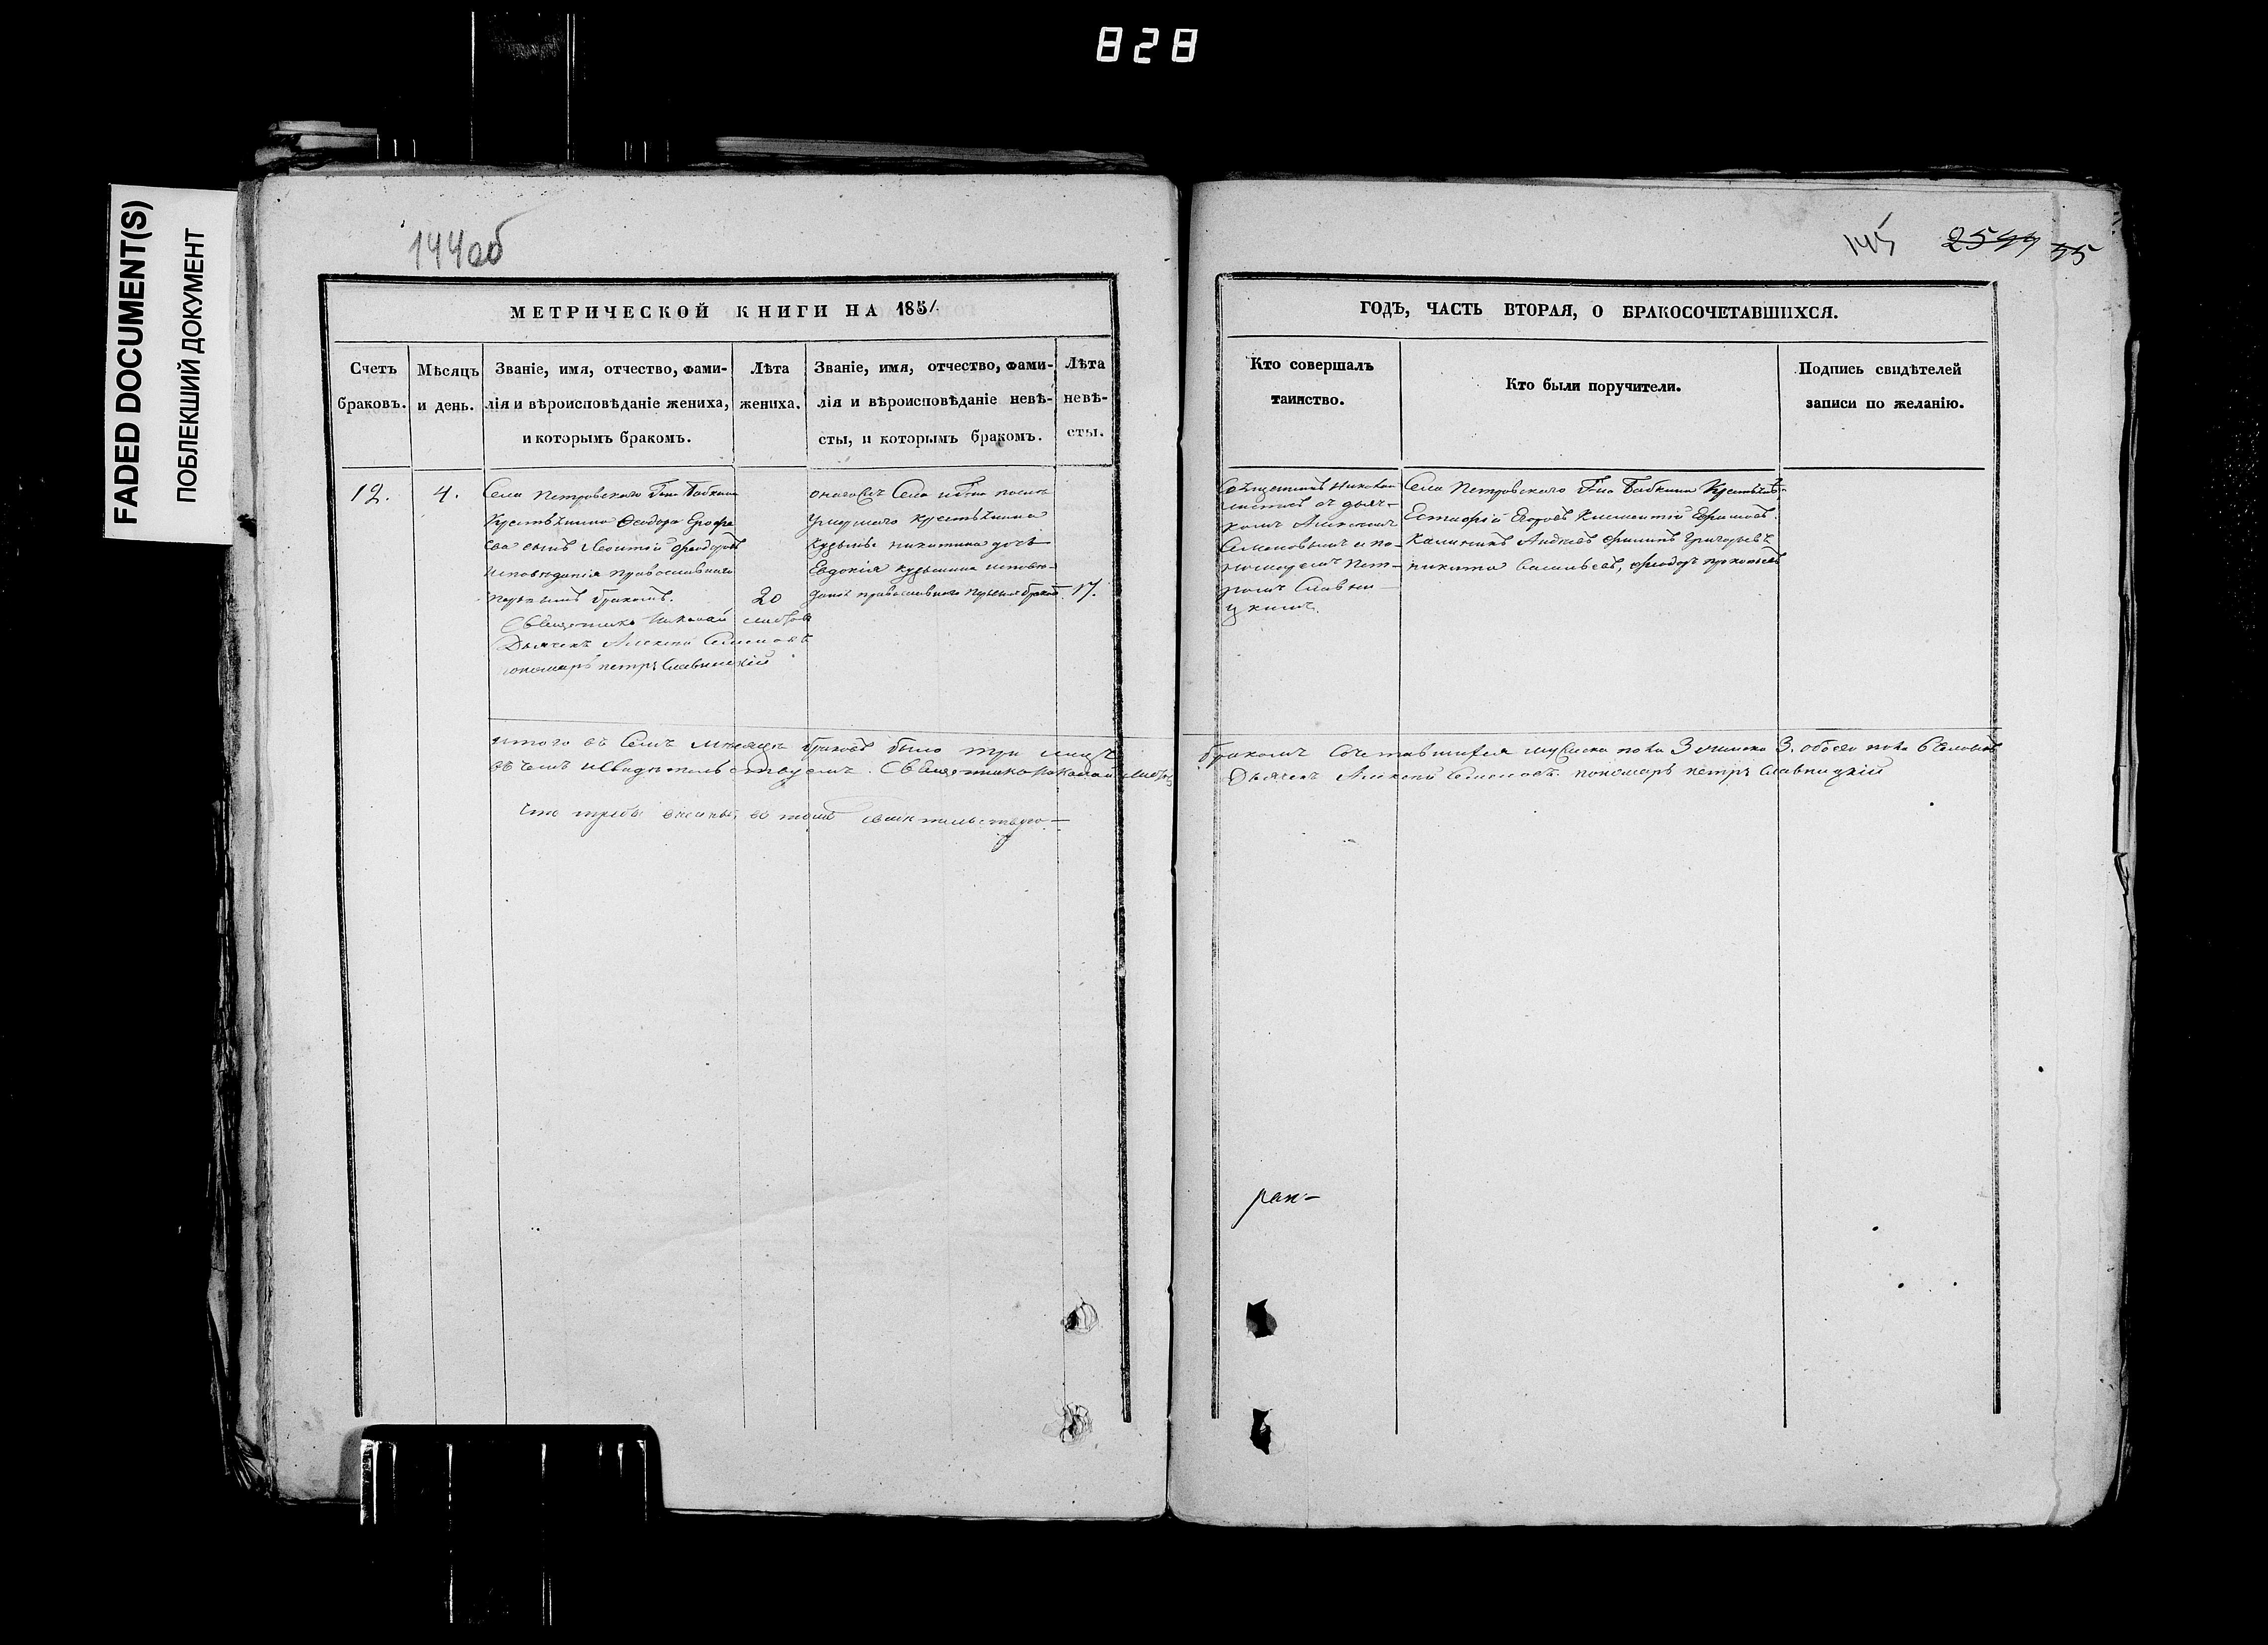 828
FADED DOCUMENT(S)
ПОБЛЕКШИЙ ДОКУМЕНТ
144об
МЕТРИЧЕСКОЙ КНИГИ НА 1851
Счетъ браковъ.
Мѣсяцъ и день.
Званіе, имя, отчество, фами-
лія и вѣроисповѣданіе жениха,
и которымъ бракомъ.
Лѣта
жениха.
Званіе, имя, отчество, фами-
лія и вѣроисповѣданіе невѣ-
сты, и которымъ бракомъ.
Лѣта
невѣ-
сты.
12.
4.
Села Петровскаго Гна Бабкина
Крестьянина Феодора Ерофе
ева сынъ Леонтій Феодоровъ
исповѣданія православнаго
первымъ бракомъ.
20
Священникъ Николай
Дьячекъ Алексій Семеновъ
пономарь петръ Славницкій
Села и Гна
умершаго крестьянина
Кузьмы никитина дочь
Евдокія кузьмина исповѣ-
данія православнаго первымъ бракомъ
17.
итого въ семъ мѣсяцѣ браковъ было три лицъ
въ чемъ и свидѣтельствуемъ. Священникъ Николай
145 2544 45
ГОДЪ, ЧАСТЬ ВТОРАЯ, О БРАКОСОЧЕТАВШИХСЯ.
Кто совершалъ
таинство.
Кто были поручители.
Подпись свидѣтелей
записи по желанію.
Священникъ Николай
съ дьяч-
комъ Алексіемъ
Семеновымъ и по-
номаремъ Пет-
ромъ Славни-
цкимъ.
Села Петровскаго Гна Бабкина Крестьяне
Естафій Егоровъ Климентій Ефимовъ.
Калининъ Андреевъ Филипъ Григорьевъ
никита Васильевъ, феодоръ прокопьевъ
бракомъ сочетавшихся мужеска пола 3 женска 3. обоего пола 6 человѣкъ
Дьячекъ Алексій Семеновъ. пономарь петръ Славницкій